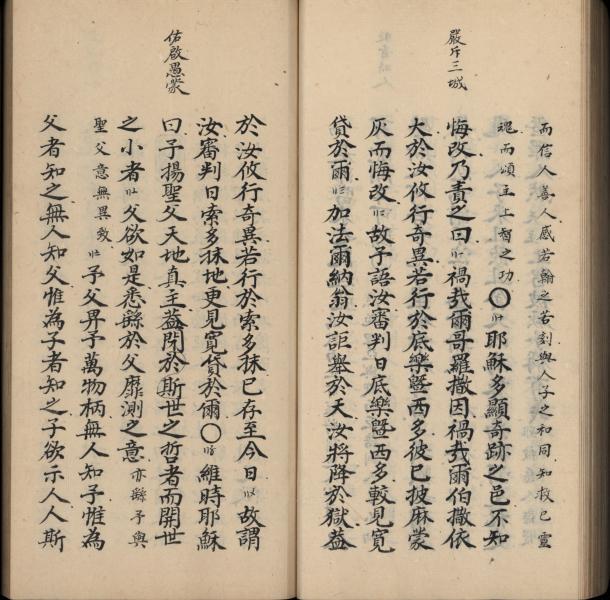 嚴斥三城
而信人善人感若翰之苦刻與人子之和同知救己靈
魂而頌主上智之功○廿耶穌多顯奇跡之邑不知
悔改乃責之曰廿一禍哉爾哥羅撒因禍哉爾伯撒依
大於汝攸行奇異若行於底樂曁西多彼已披麻蒙
灰而悔改廿二故予語汝審判日底樂曁西多較見寬
貸於爾廿三加法爾納翁汝詎舉於天汝將降於獄葢
佑啟愚蒙
於汝攸行奇異若行於索多抹已存至今日廿四故謂
汝審判日索多抹地更見寬貸於爾○廿五維時耶穌
曰予揚聖父天地真主葢閉於斯世之哲者而開世
之小者廿六父欲如是悉繇於父靡測之意亦繇予與
聖父意無異致廿七予父畀予萬物柄無人知子惟為
父者知之無人知父惟為子者知之子欲示人人斯